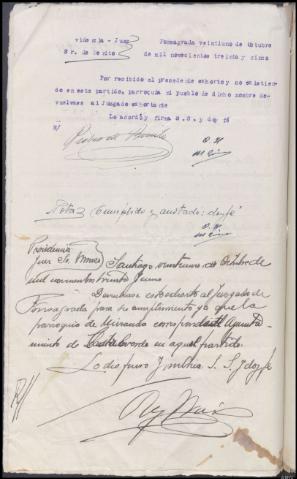 vincula - Juez Fonsagrada veintiuno de Octubre
Sr. de Benito de mil novecientos treinta y cinco
Por recibido el precedente exhorto y no existien
do en este partido, parroquia ni pueblo de dicho nombre de-
vuelvase al Juzgado exhortante
Lo acordó y firma S.S. y doy fé
Nota: Cumplido y anotado; doy fé
Providencia
Juez Sr.
Santiago, veintiuno de Octubre de
mil novecientos treinta y cinco
Devuelvase este exhorto al Juzgado de
Fonsagrada para su cumplimiento ya que la
parroquia de Miranda corresponde al Ayunta-
miento de Castroverde en aquel partido.
Lo dispuso y rubrica S. S. y doy fe